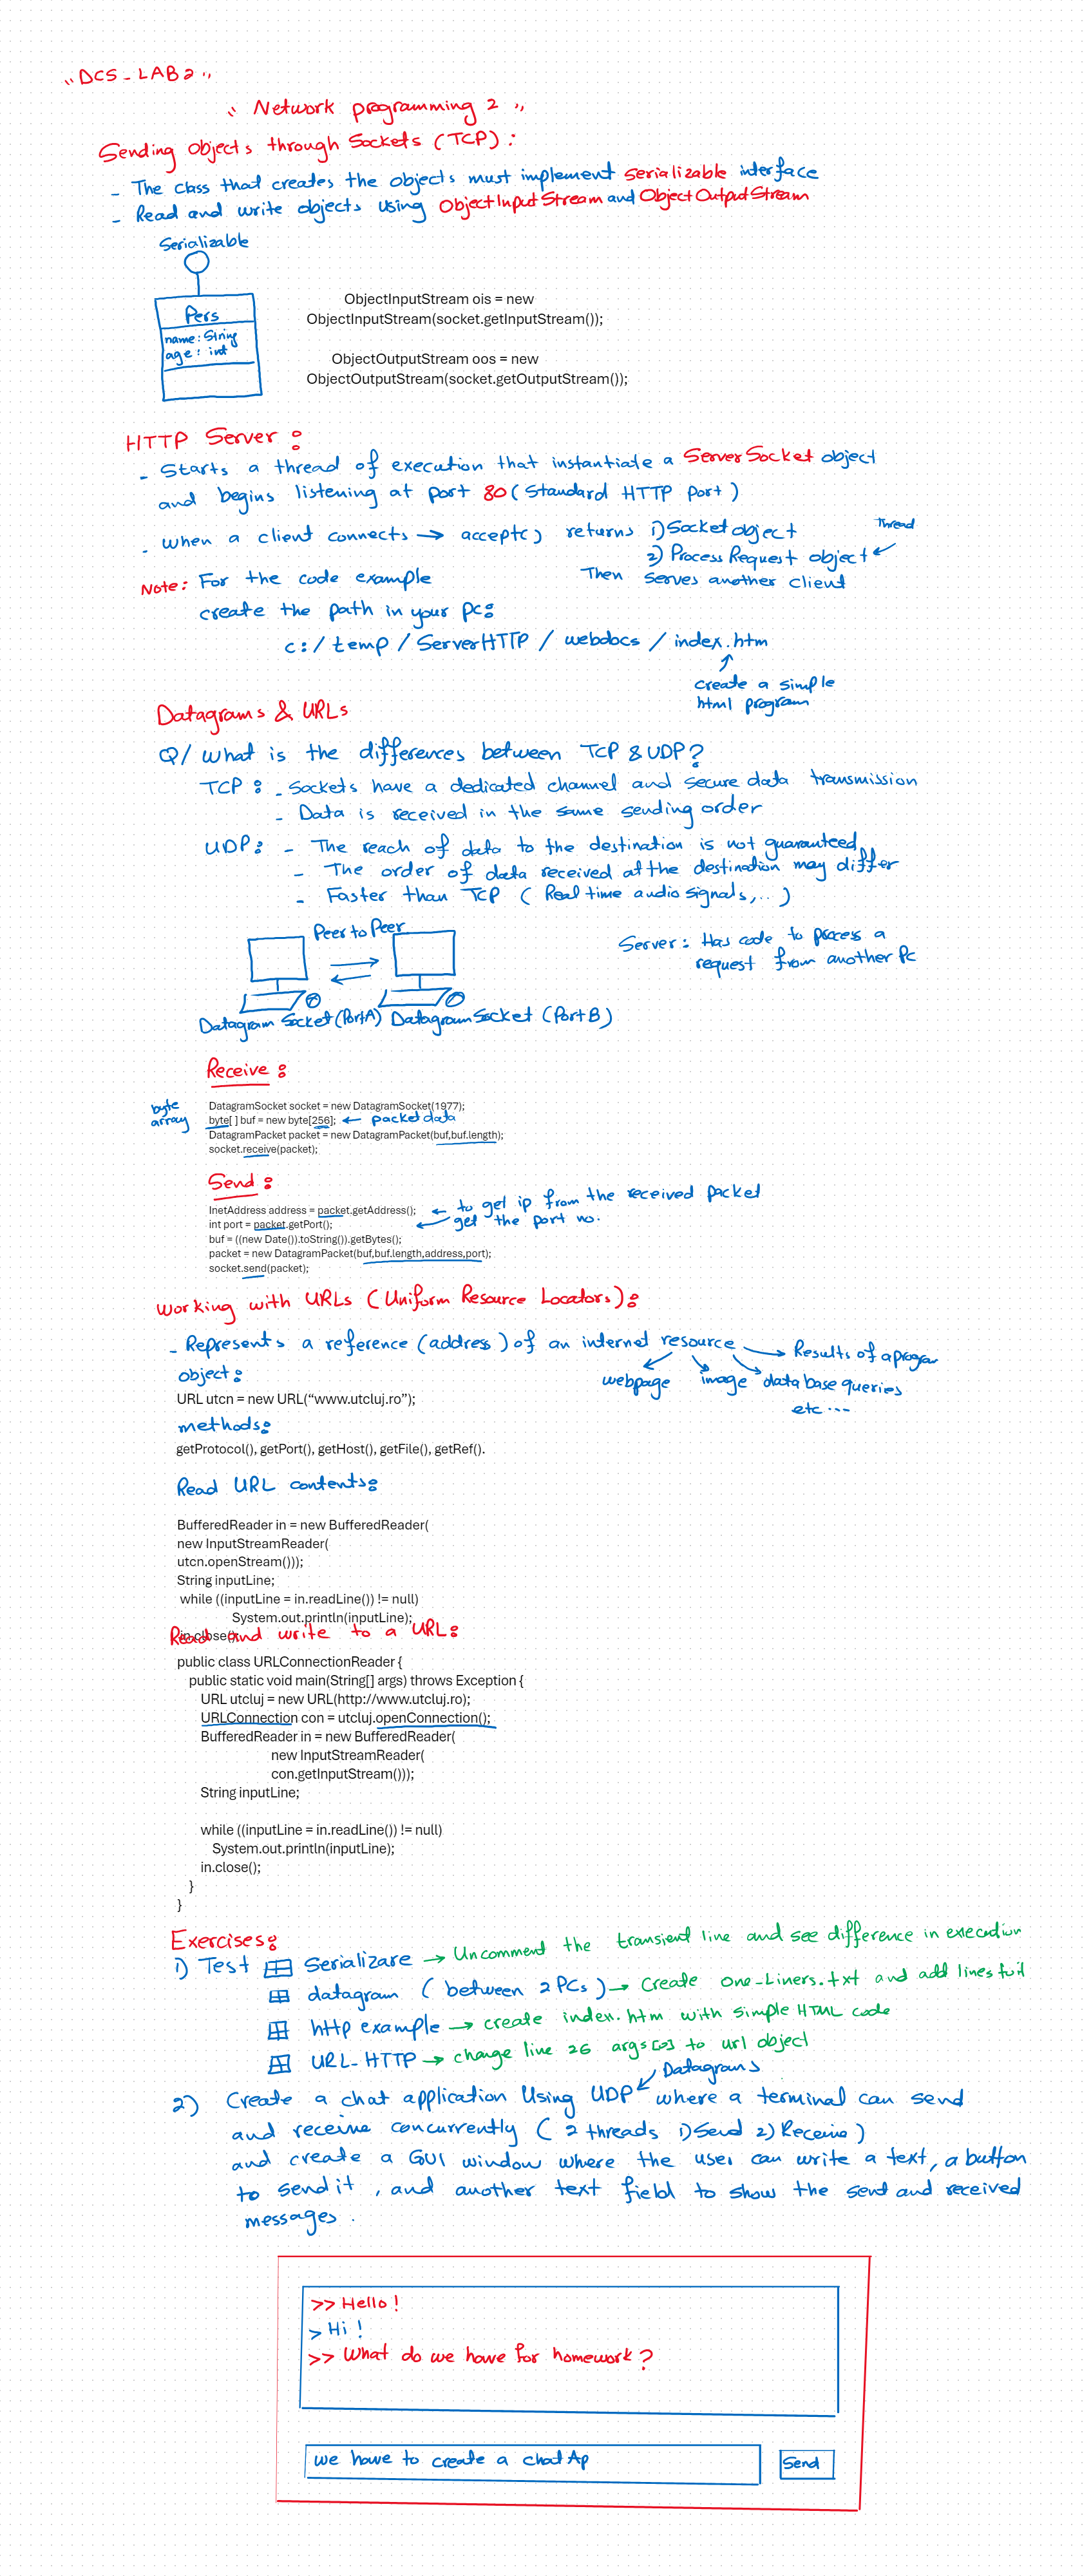 "DCS - LAB 2"
"Network programming 2"
Sending Objects through Sockets (TCP):
- The class that creates the objects must implement Serializable interface
- Read and write objects using ObjectInputStream and ObjectOutputStream
Serializable
Pers
name: String
age: int
ObjectInputStream ois = new
ObjectInputStream(socket.getInputStream());
ObjectOutputStream oos = new
ObjectOutputStream(socket.getOutputStream());
HTTP Server:
- Starts a thread of execution that instantiate a ServerSocket object
and begins listening at port 80 (Standard HTTP port)
- when a client connects → accept() returns 1) Socket object
Thread
2) Process Request object
Then serves another client
Note: For the code example
create the path in your pc:
c:/temp/ServerHTTP/webdocs/index.htm
create a simple
html program
Datagrams & URLs
Q/ what is the differences between TCP & UDP?
TCP: - Sockets have a dedicated channel and secure data transmission
- Data is received in the same sending order
UDP: - The reach of data to the destination is not guaranteed
- The order of data received at the destination may differ
- Faster than TCP (Real time audio signals,..)
Peer to Peer
Server: Has code to process a
request from another Pc
Datagram Socket (PortA) Datagram Socket (Port B)
Receive:
byte
array
DatagramSocket socket = new DatagramSocket(1977);
byte[ ] buf = new byte[256]; ← packet data
DatagramPacket packet = new DatagramPacket(buf,buf.length);
socket.receive(packet);
Send:
InetAddress address = packet.getAddress(); ← to get ip from the received packet
int port = packet.getPort(); ← get the port no.
buf = ((new Date()).toString()).getBytes();
packet = new DatagramPacket(buf,buf.length,address,port);
socket.send(packet);
Working with URLs (Uniform Resource Locators):
- Represents a reference (address) of an internet resource → Results of a program
webpage image data base queries
etc ...
object:
URL utcn = new URL(“www.utcluj.ro”);
methods:
getProtocol(), getPort(), getHost(), getFile(), getRef().
Read URL contents:
BufferedReader in = new BufferedReader(
new InputStreamReader(
utcn.openStream()));
String inputLine;
while ((inputLine = in.readLine()) != null)
System.out.println(inputLine);
in.close();
Read and write to a URL:
public class URLConnectionReader {
public static void main(String[] args) throws Exception {
URL utcluj = new URL(http://www.utcluj.ro);
URLConnection con = utcluj.openConnection();
BufferedReader in = new BufferedReader(
new InputStreamReader(
con.getInputStream()));
String inputLine;
while ((inputLine = in.readLine()) != null)
System.out.println(inputLine);
in.close();
}
}
Exercises:
1) Test Serializare → Uncomment the transient line and see difference in execution
datagram (between 2 PCs) → Create one-Liners.txt and add lines
http example → create index.htm with simple HTML code
URL-HTTP → change line 26 args[0] to url object
Datagrams
2) Create a chat application Using UDP where a terminal can send
and receive concurrently (2 threads 1) Send 2) Receive)
and create a GUI window where the user can write a text, a button
to send it, and another text field to show the sent and received
messages.
>> Hello!
> Hi!
>> What do we have for homework?
we have to create a chat Ap
Send